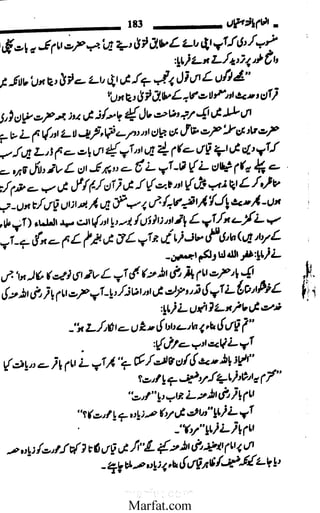 انعام یافتہ ہستیاں 183
منسوب کر دی کہ آپ اپنی رائے کے مطابق فتویٰ دیتے ہیں جب حضرت امام تک یہ بات پہنچی
واضح طور پر تردید کرتے ہوئے فرمایا:
"مجھے لوگوں کے اس قول پر تعجب ہے کہ میں اپنی رائے سے فتویٰ دیتا ہوں' حالانکہ میں
قرآن و حدیث اور معمولات صحابہ کے مطابق فتویٰ دیتا ہوں"
اس سلسلہ میں ایک مرتبہ وضاحت حال کیلئے جامعہ کوفہ میں بروز جمعہ حضرت سفیان ثوری
حضرت حماد بن سلمہ حضرت مقاتل بن حیان اور دوسرے فقہاء تشریف لائے اور کہا ہم نے سنا ہے
کہ آپ دین میں اپنے قیاس سے کام لیتے ہیں اور آپ کیلئے اس بات سے ہم ڈرتے ہیں کہ سب
سے پہلے یہ کام شیطان نے کیا تھا۔ آپ نے صبح سے دوپہر تک ان کے ساتھ دلائل قاہرہ سے
مناظرہ کر کے اپنا مذہب پیش کیا اور ثابت کیا کہ میں قرآن کریم کو عمل میں سب سے مقدم کرتا
ہوں۔ پھر حدیث پاک کو پھر اقضیہ صحابہ کو جس پر متفق ہیں پھر بعد ازاں قیاس کرتا ہوں۔ تب
سب نے کھڑے ہو کر آپ کے ہاتھ اور زانوؤں کو بوسہ دیا اور کہا انت سید العلماء (آپ علماء
کے سردار ہیں) ہماری غلطی معاف فرمائیں جو آپ کے حق میں بغیر علم کے ہم سے ہو گئی ہے۔ آپ
نے فرمایا: غفر الله لنا ولکم اجمعین۔
ایک بار حضرت امام باقر رضی اللہ عنہ کا بھی آپ کے ساتھ اسی نوعیت کا مکالمہ ہوا' جس
کے خوشگوار نتائج نے آپ کی قدر و منزلت میں اور اضافہ کر دیا۔ آپ حضرت امام باقر رضی اللہ عنہ کی
خدمت میں حاضر ہوئے تو انہوں نے فرمایا:
"تم قیاس کی بناء پر ہمارے دادا کی حدیثوں سے انکار کرتے ہو"۔
آپ نے نہایت ادب سے عرض کیا:
"العیاذ باللہ حدیث کی کون مخالفت کر سکتا ہے" پھر آپ نے امام باقر سے دریافت کیا
"محترم یہ ارشاد فرمایئے کہ مرد ضعیف ہے یا عورت؟
امام باقر رضی اللہ عنہ نے جواب دیا "عورت"
آپ نے فرمایا "وراثت میں مرد کا حصہ زیادہ ہے یا عورت کا؟"
امام باقر نے فرمایا "مرد کا"۔
اس پر امام ابوحنیفہ رضی اللہ عنہ کہنے لگے "اگر میں قیاس لگاتا تو کہتا کہ عورت کو زیادہ حصہ
دیا جائے کیونکہ ضعیف کو ظاہر قیاس کی بناء پر زیادہ حصہ ملنا چاہیے۔
Marfat.com